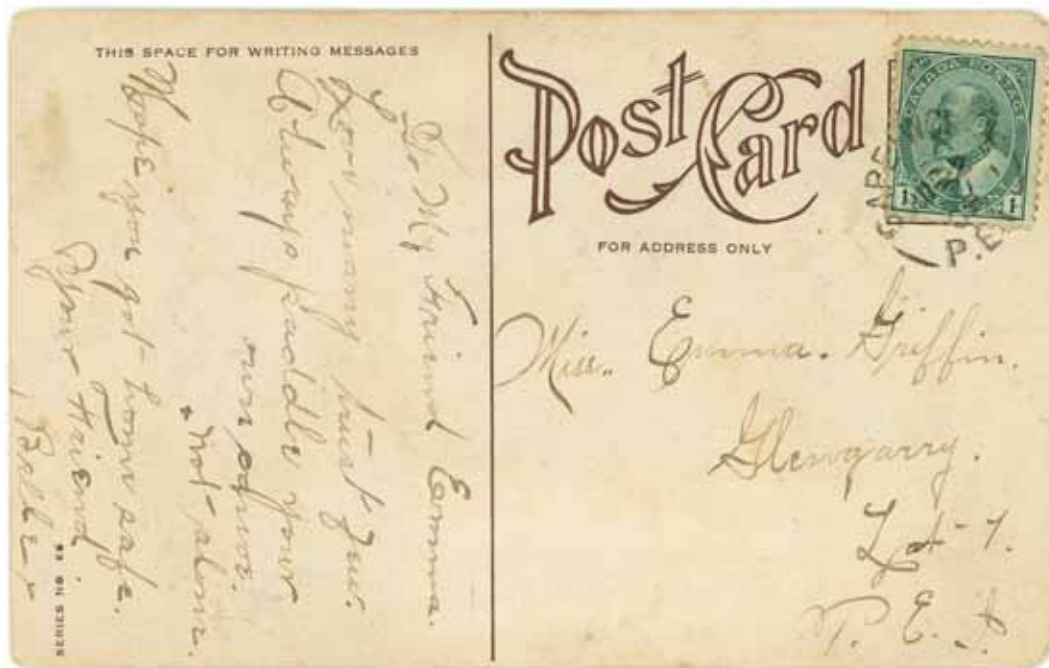 THIS SPACE FOR WRITING MESSAGES
To My Friend Emma.
Love many trust few.
Always paddle your
own canoe.
not alone.
Hope you got home safe.
Your Friend
Belle
SERIES NO
Post Card
FOR ADDRESS ONLY
CANADA POSTAGE
1 1
P.E
Miss. Emma. Griffin.
Glengarry.
Lot 7.
P. E. I.